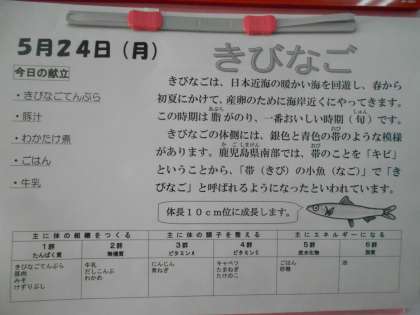 5月24日(月)
きびなご
今日の献立
・きびなごてんぷら
・豚汁
・わかたけ煮
・ごはん
・牛乳
きびなごは、日本近海の暖かい海を回遊し、春から
初夏にかけて、産卵のために海岸近くにやってきます。
この時期は脂がのり、一番おいしい時期(旬)です。
きびなごの体側には、銀色と青色の帯のような模様
があります。鹿児島県南部では、帯のことを「キビ」
ということから、「帯(きび)の小魚(なご)」で「き
びなご」と呼ばれるようになったといわれています。
体長10cm位に成長します。
主に体の組織をつくる 主に体の調子を整える 主にエネルギーになる
1群 2群 3群 4群 5群 6群
たんぱく質 無機質 ビタミンA ビタミンC 炭水化物 脂質
きびなごてんぷら 牛乳 にんじん キャベツ ごはん 油
豚肉 だしこんぶ 青ねぎ たまねぎ 砂糖
みそ わかめ たけのこ
けずりぶし